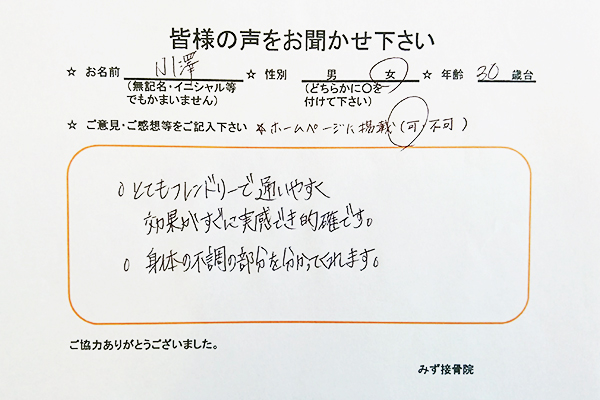 皆様の声をお聞かせ下さい
☆ お名前 小澤 ☆ 性別 男 女 ☆ 年齢 30 歳台
(無記名・イニシャル等でもかまいません) (どちらかに〇を付けて下さい)
☆ ご意見・ご感想等をご記入下さい ☆ホームページに掲載(可・不可)
○ とてもフレンドリーで通いやすく
効果がすぐに実感でき的確です。
○ 身体の不調の部分を分かってくれます。
ご協力ありがとうございました。
みず接骨院